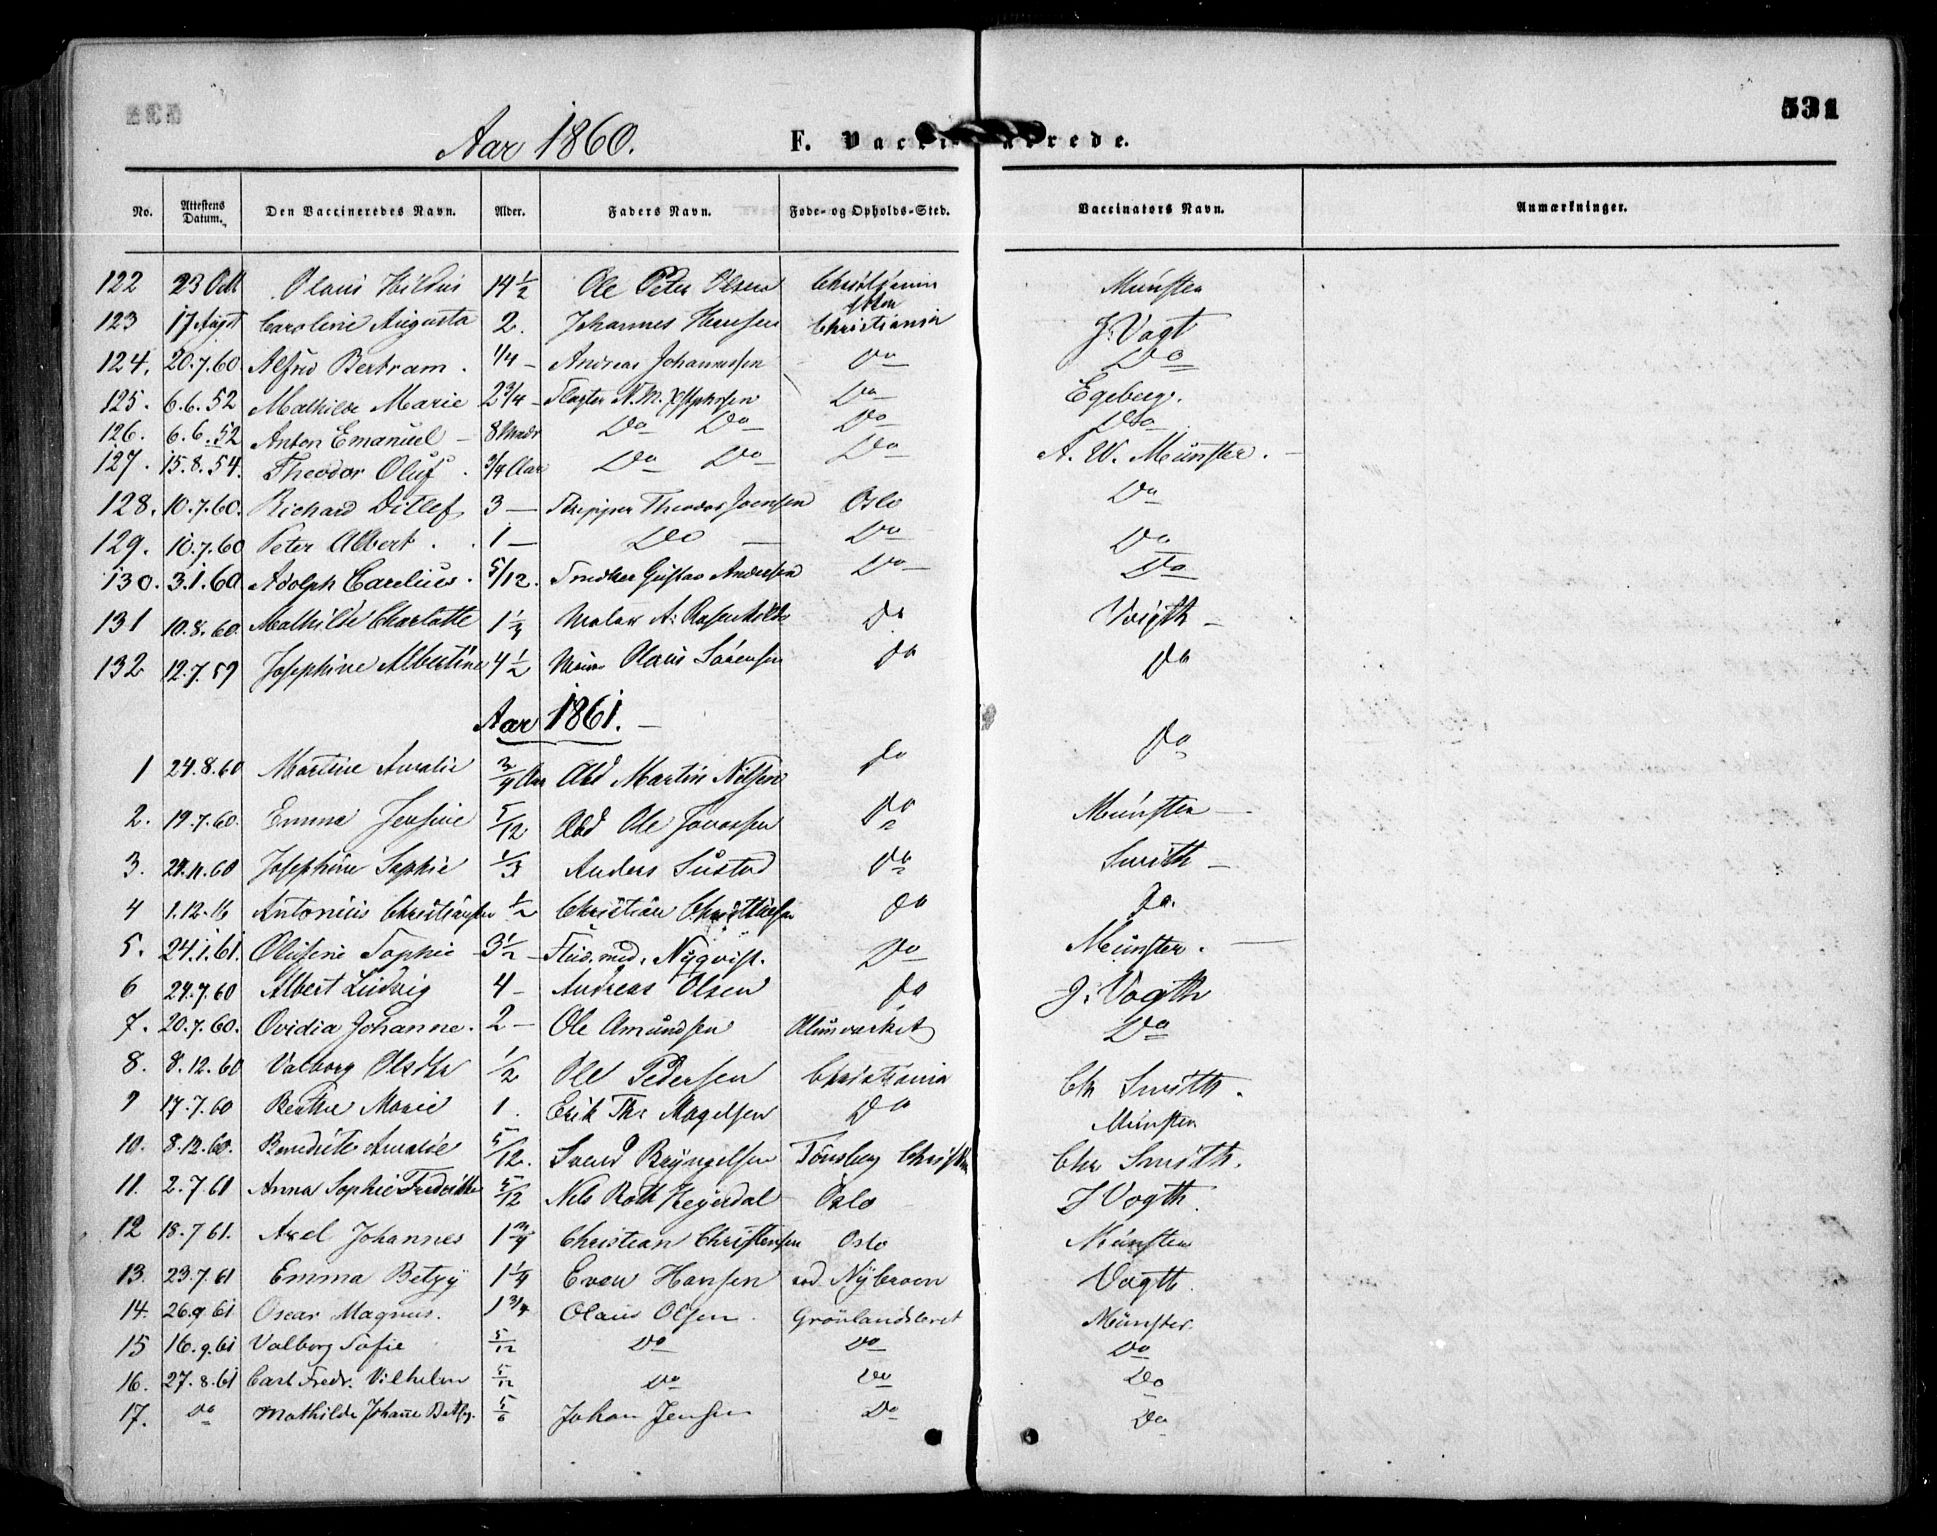 531
Aar 1860. F. Vaccinerede.
No. Attestens Datum. Den Vaccineredes Navn. Alder. Faders Navn. Føde- og Opholds-Sted. Vaccinators Navn. Anmærkninger.
122 23 Ott Olaus Hildus 14 1/2 Ole Peter Olsen Christiania Münster
123 17 Augst Caroline Augusta 2. Johannes Hansen Christiania J. Vogt
124. 20.7.60. Alfred Bertram. 1/4 - Andreas Johannessen Do Do
125. 6.6.52 Mathilde Marie 2 3/4 - Slagter N. M. Do Egeberg.
126. 6.6.52 Anton Emanuel - 8 Do Do Do Do
127. 15.8.54. Theodor Oluf. 3/4 Aar Do Do Do A. W. Münster. -
128. 10.7.60. Richard Ditlef 3 - Skipper Theodor Oslo Do
129. 10.7.60 Peter Albert. . 1 - Do - Do Do
130. 3.1.60. Adolph Carelius. 5/12. Gustav Andersen Do Do
131 10.8.60. Mathilde Charlotte 1 1/3 Maler A. Do Voigth -
132 12.7.59 Josephine Albertine 4 1/2 Olaus Sørensen Do Do
Aar 1861. -
1 24.8.60 Martine Amalie 3/4 Aar Abd Martin Nilsen Do Do
2. 19.7.60. Emma Jensine 5/12 Abd Ole Do Münster -
3. 24.11.60 Josephine Sophie 1/3 Anders Do Smith -
4 1.12.16 Antonius Christiansen 1/2 Christian Do Do.
5. 24.1.61. Olufine Sophie - 3 1/2 - Stud. med. Nyqvist. Do Münster. -
6 24.7.60 Albert Ludvig 4 - Andreas Olsen Do J. Vogth
7. 20.7.60. Ovidia Johanne. 2 - Ole Amundsen Alunverket Do
8. 8.12.60 Valborg 1/2 Ole Pedersen Christiania Chr Smith.
9 17.7.60 Berthe Marie 1. Erik Thr Magelsen Do Münster
10. 8.12.60. Benedicte Amalie 5/12. Svend Bryngelsen Tønsberg Chr Smith.
11. 2.7.61 Anna Sophie Fredrikke 5/12 Nils Roth Heyerdal Oslo J Vogth.
12 18.7 61. Axel Johannes 1 3/4 Christian Christensen Oslo Münster
13. 23.7.61 Emma Betzy 1 1/4 Even Hansen ved Nybroen Vogth.
14. 26.9.61 Oscar Magnus. 1 3/4 Olaus Olsen. Grønlandsleret Münster.
15 16.9.61 Valborg Sofie 5/12 Do Do Do
16. 27.8.61 Carl Fredr. Vilhelm 5/12 Do Do Do
17. Do Mathilde Johane Betsy. 5/6 Johan Jensen Do Do